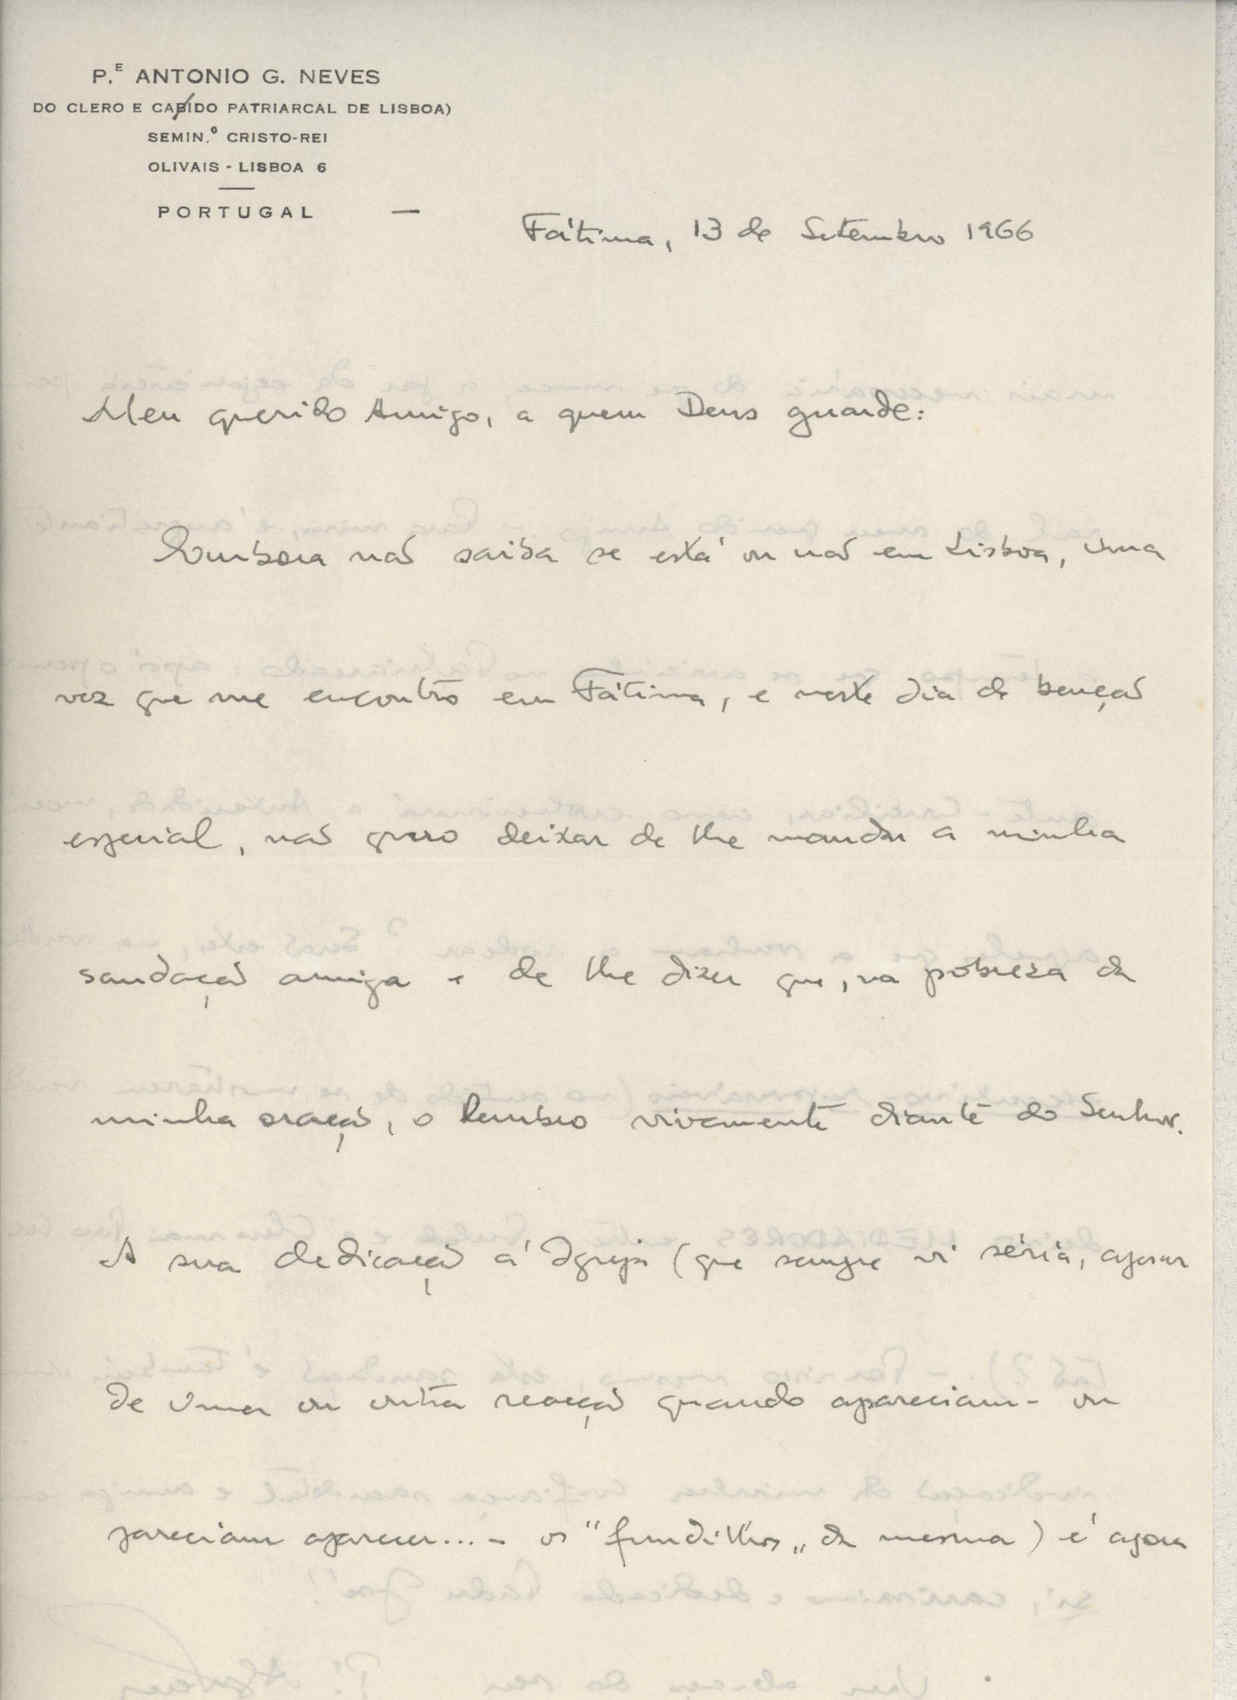 P.E ANTONIO G. NEVES
DO CLERO E CABIDO PATRIARCAL DE LISBOA)
SEMIN.º CRISTO-REI
OLIVAIS - LISBOA 6
PORTUGAL —
Fátima, 13 de Setembro 1966
Meu querido Amigo, a quem Deus guarde:
Embora não saiba se está ou não em Lisboa, uma
vez que me encontro em Fátima, e neste dia de benção
especial, não quero deixar de lhe mandar a minha
saudação amiga e de lhe dizer que, na pobreza da
minha oração, o lembro vivamente diante do Senhor.
A sua dedicação á Igreja (que sempre vi séria, apesar
de uma ou outra reacção quando apareciam - ou
pareciam aparecer... - os "fundilhos" da mesma) é agora